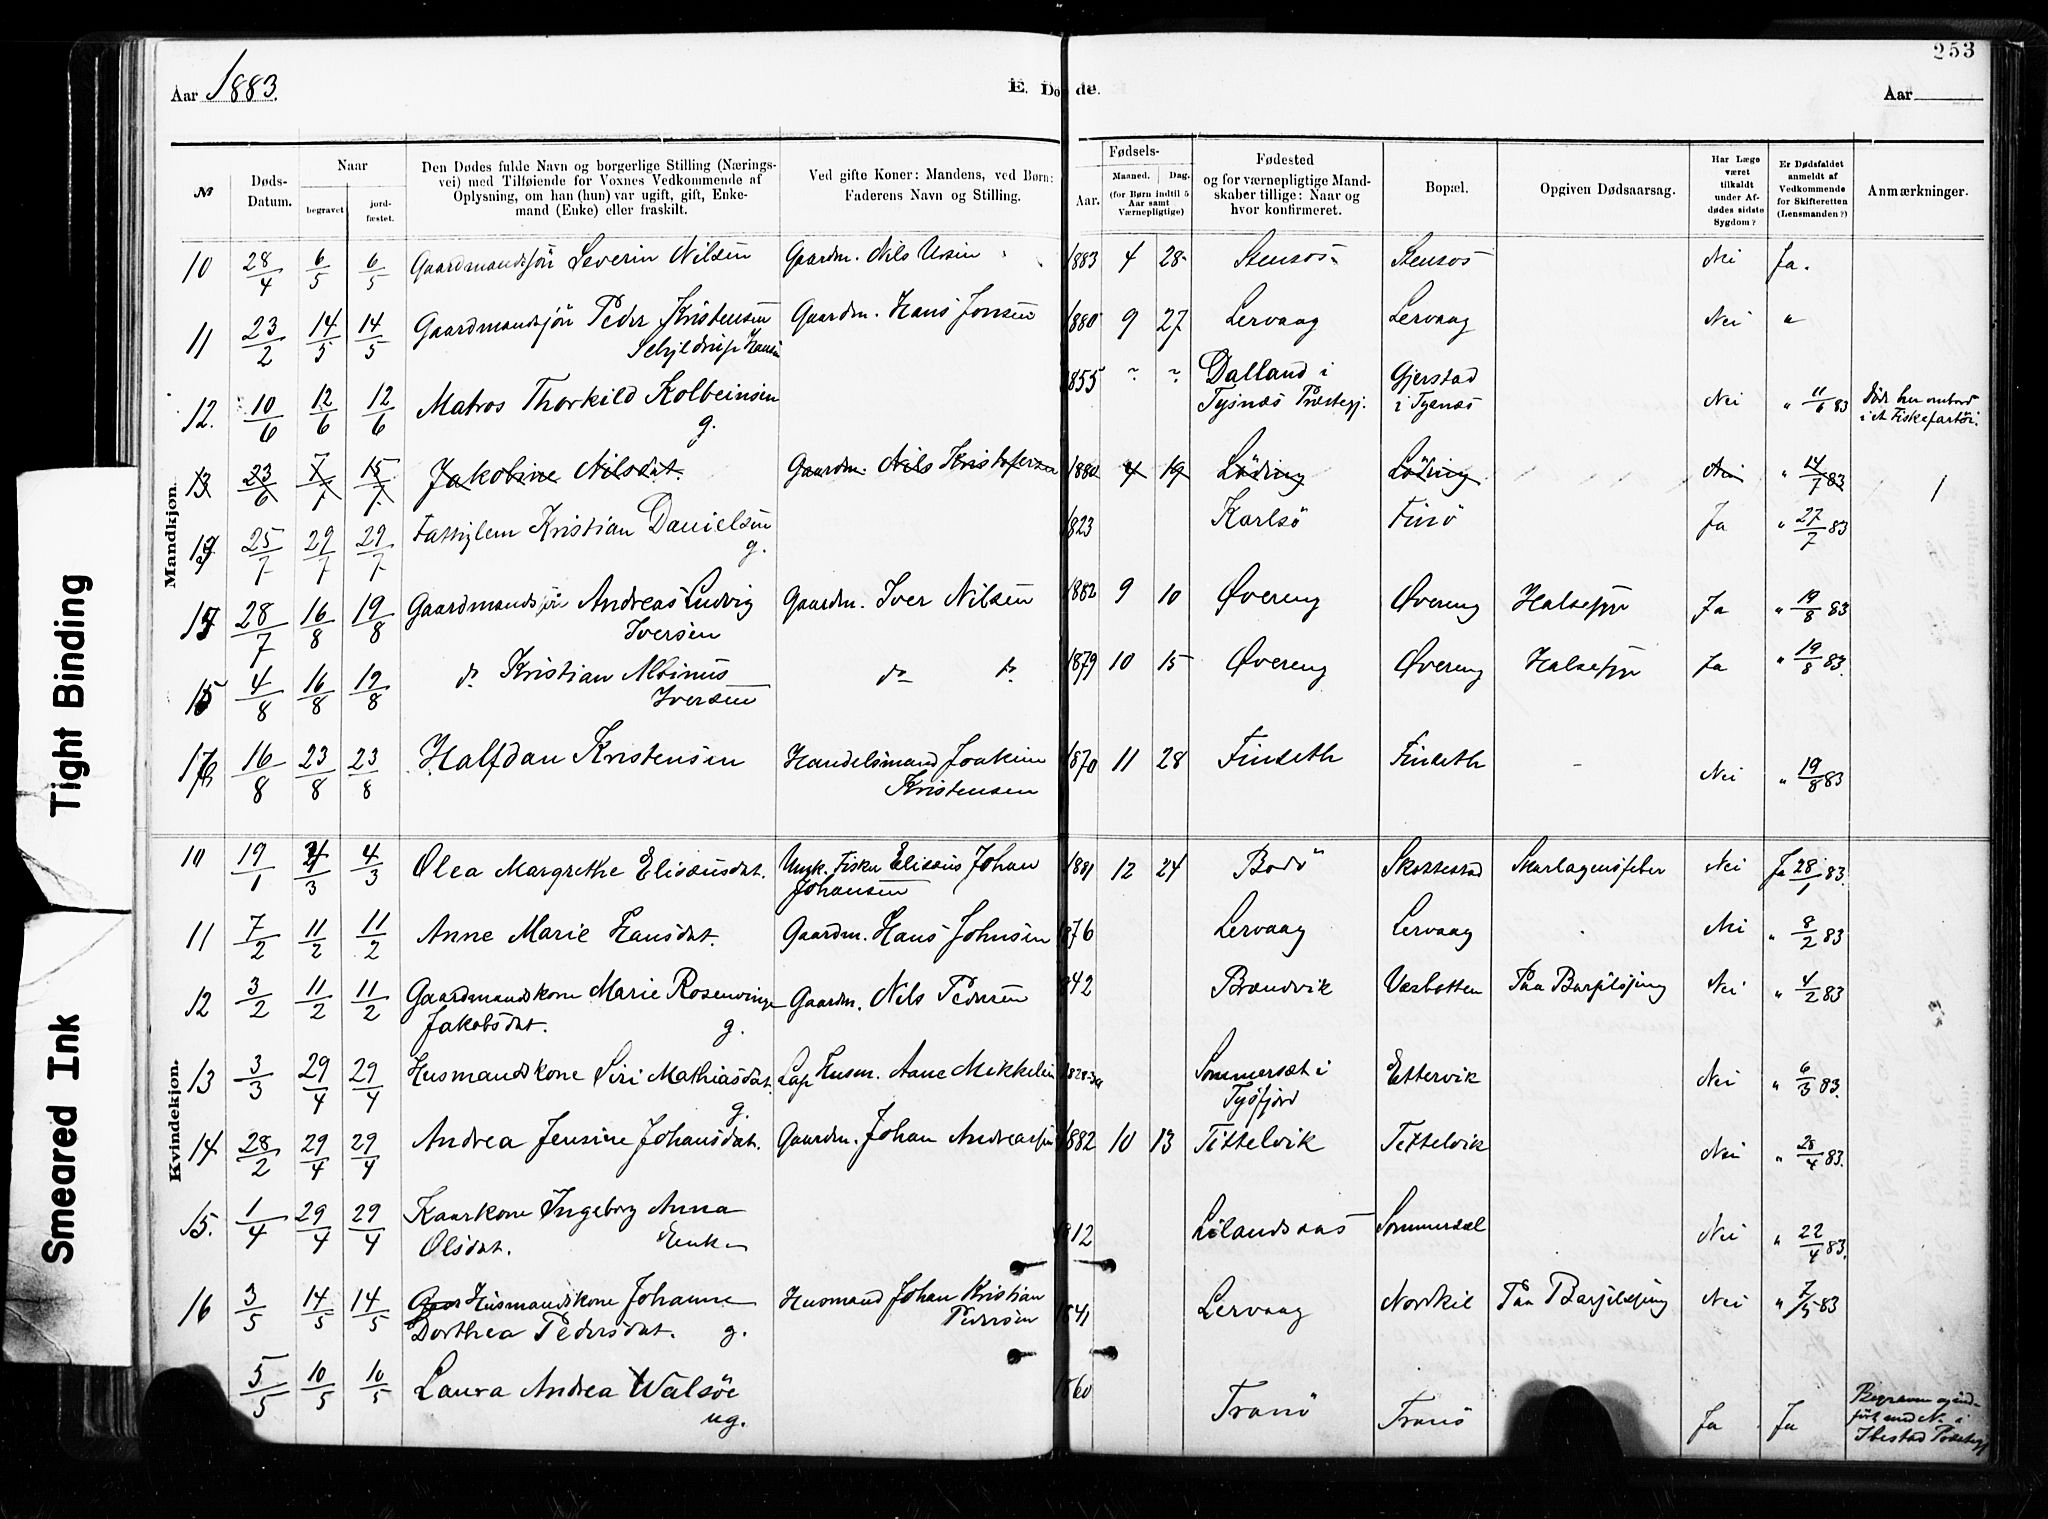 253
Aar 1883.
E. Døde.
Aar
№
Døds-Datum.
Naar
begravet
jordfæstet.
Den Dødes fulde Navn og borgerlige Stilling (Nærings-
vei) med Tilføiende for Voxnes Vedkommende af
Oplysning, om han (hun) var ugift, gift, Enke-
mand (Enke) eller fraskilt.
Ved gifte Koner: Mandens, ved Børn:
Faderens Navn og Stilling.
Fødsels-
Aar.
Maaned.
Dag.
(for Børn indtil 5
Aar samt
Værnepligtige)
Fødested
og for værnepligtige Mand-
skaber tillige: Naar og
hvor konfirmeret.
Bopæl.
Opgiven Dødsaarsag.
Har Læge
været
tilkaldt
under Af-
dødes sidste
Sygdom?
Er Dødsfaldet
anmeldt af
Vedkommende
for Skifteretten
(Lensmanden?)
Anmærkninger.
Mandkjøn.
10 28/4 6/5 6/5 Gaardmandssøn Severin Nilsen Gaardm. Nils Ursin 1883 4 28 Stensøs Stensøs Nei Ja.
11 23/2 14/5 14/5 Gaardmandssøn Peder Kristensen Gaardm. Hans Jonsen 1880 9 27 Lervaag Lervaag Nei "
Schjeldrup Hansen
12. 10/6 12/6 12/6 Matros Thorkild Kolbeinsen 1855 ~ ~ Dalland i Gjerstad Nei " 11/6 83 Døde her ombord
g. Tysnæs Præstegj. i Tysnæs i et Fiskefartøi.
13 23/6 7/7 15/7 Jakobine Nilsdat. Gaardm. Nils Kristofersen 1880 4 19 Løding Løding Nei " 14/7 83
25/7 29/7 29/7 Fattiglem Kristian Danielsen 1823 Karlsø Finø Ja " 27/7 83
g.
28/7 16/8 19/8 Gaardmandssøn Andreas Ludvig Gaardm. Iver Nilsen 1882 9 10 Øvereng Øvereng Halsesyge Ja " 19/8 83
Iversen
4/8 16/8 19/8 do Kristian Albinus do do 1879 10 15 Øvereng Øvereng Halsesyge Ja " 19/8 83.
Iversen
16/8 23/8 23/8 Halfdan Kristensen Handelsmand Joakim 1870 11 28 Finseth Finseth - Nei " 19/8 83
Kristensen
Kvindekjøn.
10 19/1 4/3 4/3 Olea Margrethe Elisæusdat. Ungk. Fisker Elisæus Johan 1881 12 24 Bodø Skottestad Skarlagensfeber Nei Ja 28/1 83.
Johansen
11 7/2 11/2 11/2 Anne Marie Hansdat. Gaardm. Hans Johnsen 1876 Lervaag Lervaag Nei " 8/2 83
12 3/2 11/2 11/2 Gaardmandskone Marie Rosenvinge Gaardm. Nils Pedersen 1842 Brændvik Vasbotten Paa Barselseng Nei " 4/2 83
Jakobsdat. g.
13 3/3 29/4 29/4 Husmandskone Siri Mathiasdat. Lap Husm. Aane Mikkelsen Sommersæt i Ettervik Nei " 6/3 83.
g. Tysfjord
14 28/2 29/4 29/4 Andrea Jensine Johansdat. Gaardm. Johan Andreassen 1882 10 13 Tittelvik Tittelvik Nei " 28/4 83.
15. 1/4 29/4 29/4 Kaarkone Ingeborg Anna 1812 Lilandsaas Sommersæt Nei " 22/4 83.
Olsdat. Enke
16 3/5 14/5 14/5 Husmandskone Johanne Husmand Johan Kristian 1841 Lervaag Nordkil Paa Barselseng Nei " 7/5 83
Dorthea Pedersdat. g. Pedersen
5/5 10/5 10/5 Laura Andrea Walsöe 1860 Tranø Tranø Ja Ja Begraven og ind-
ug. ført med No i
Ibestad Præstegj.
Tight Binding
Smeared Ink